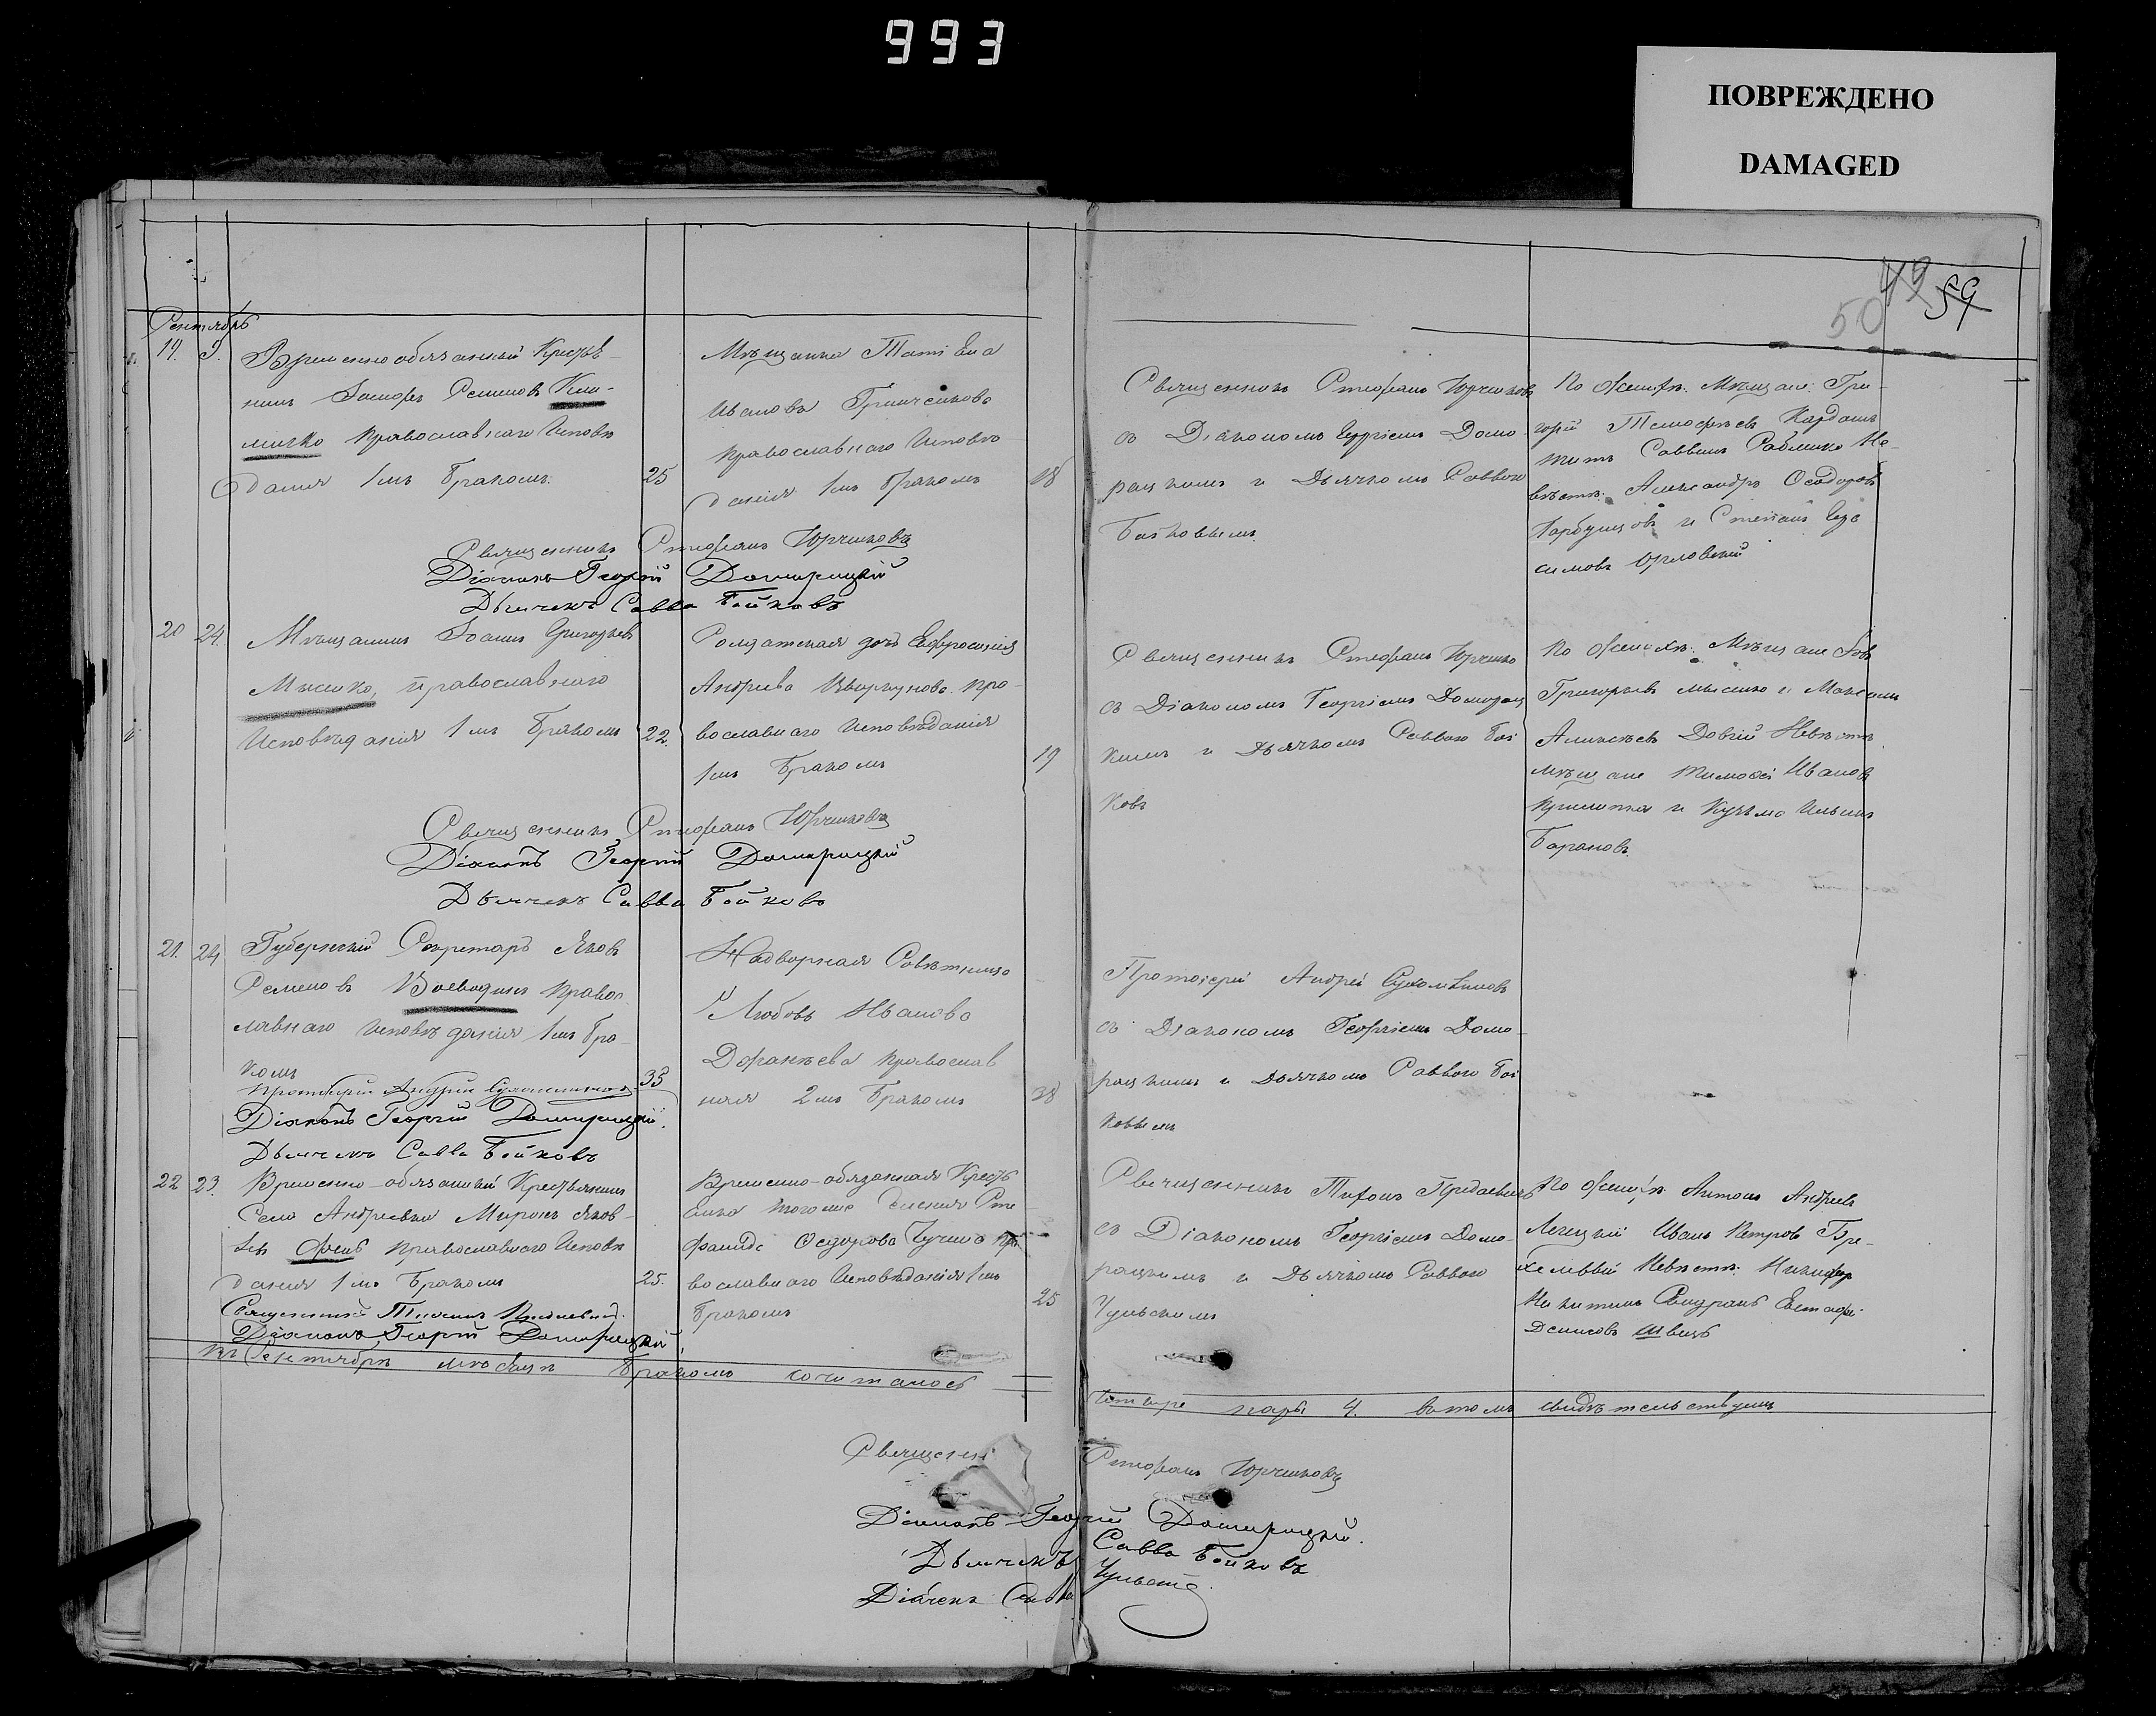 993
ПОВРЕЖДЕНО
DAMAGED
49 59
50
Сентябрь
19. 3.
Временно обязанный Крестья-
нинъ Іосифъ Семеновъ
православнаго Исповѣ
данія 1мъ бракомъ. 25
Мѣщанка Татіана
Иванова Гринченкова
православнаго Исповѣ
данія 1мъ бракомъ 18
Священникъ Стефанъ Юрченковъ
съ Діакономъ Георгіемъ Домо-
рацкимъ и Дьячкомъ Саввою
Бойковымъ
По Женихѣ: Мѣщане: Гри-
горій Кардашъ
Не-
вѣстѣ: Александръ Ѳедоровъ
и Степанъ
симовъ Орловскій
Священникъ Стефанъ Юрченковъ
Діаконъ Георгій Доморацкій
Дьячекъ Савва Бойковъ
20 24.
Мѣщанинъ Іоаннъ Григорьевъ
Мысико, православнаго
Исповѣданія 1мъ бракомъ 22.
Солдатская дочь Евфросинія
Андреева пра-
вославнаго Исповѣданія
1мъ бракомъ 19
Священникъ Стефанъ Юрченко
съ Діакономъ Георгіемъ Доморац
кимъ и Дьячкомъ Саввою Бой
ковъ
По Женихѣ: Мѣщане
Григорьевъ Мысико и Максимъ
Алексѣевъ Довгій Невѣстѣ
мѣщане Тимофей Ивановъ
и Кузьма Ильинъ
Барановъ.
Священникъ Стефанъ Юрченковъ
Діаконъ Георгій Доморацкій
Дьячекъ Савва Бойковъ
21. 24
Губернскій Секретарь Яковъ
Семеновъ Воеводинъ правос
лавнаго Исповѣданія 1мъ бра-
комъ 35
Надворная Совѣтница
Любовь Иванова
православ
ная 2мъ бракомъ 38
Протоіерей Андрей Сухомлиновъ
съ Діакономъ Георгіемъ Домо-
рацкимъ и Дьячкомъ Саввою Бой
ковымъ
Протоіерей Андрей Сухомлиновъ
Діаконъ Георгій Доморацкій.
Дьячекъ Савва Бойковъ
22 23.
Временно-обязанный Крестьянинъ
Села Андреевки Миронъ Яков-
левъ православнаго Исповѣ
данія 1мъ бракомъ 25.
Временно-обязанная Кресть
янка тогоже селенія Сте
фанида Ѳедорова пра
вославнаго Исповѣданія 1мъ
бракомъ 25
Священникъ Тихонъ
съ Діакономъ Георгіемъ Домо-
рацкимъ и Дьячкомъ Саввою
Чульскимъ
По Женихѣ: Антонъ Андреевъ
Иванъ Петровъ
Невѣстѣ: Никифор
Никитинъ Евстафі
Денисовъ Швецъ
Священникъ Тихонъ
Діаконъ Георгій Доморацкій
Въ Сентябрѣ мѣсяцѣ бракомъ сочиталось
Четыре пары 4. въ томъ свидѣтельствуемъ
Священн Стефанъ Юрченковъ
Діаконъ Георгій Доморацкій.
Дьячекъ Савва Бойковъ
Діячекъ Савва